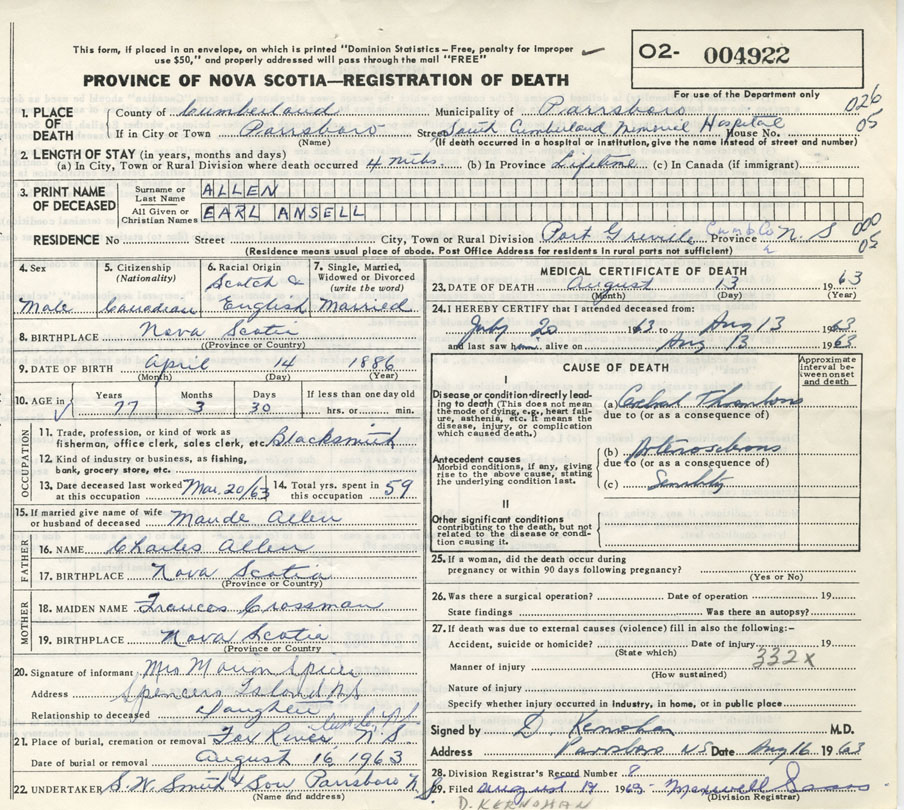 This form, if placed in an envelope, on which is printed "Dominion Statistics – Free, penalty for improper
use $50," and properly addressed will pass through the mail "FREE"
O2- 004922
For use of the Department only
PROVINCE OF NOVA SCOTIA—REGISTRATION OF DEATH
1. PLACE OF DEATH County of Cumberland Municipality of Parrsboro 026
If in City or Town Parrsboro Street South Cumberland Memorial Hospital House No. 05
(Name) (If death occurred in a hospital or institution, give the name instead of street and number)
2. LENGTH OF STAY (in years, months and days)
(a) In City, Town or Rural Division where death occurred 4 mths (b) In Province Lifetime (c) In Canada (if immigrant)
3. PRINT NAME OF DECEASED Surname or Last Name ALLEN
All Given or Christian Names EARL ANSELL
RESIDENCE No Street City, Town or Rural Division Port Greville Province N. S 000 05
(Residence means usual place of abode. Post Office Address for residents in rural parts not sufficient)
4. Sex Male
5. Citizenship (Nationality) Canadian
6. Racial Origin Scotch & English
7. Single, Married, Widowed or Divorced (write the word) Married
8. BIRTHPLACE Nova Scotia
(Province or Country)
9. DATE OF BIRTH April 14 1886
(Month) (Day) (Year)
10. AGE in Years Months Days If less than one day old
77 3 30 hrs. or min.
OCCUPATION
11. Trade, profession, or kind of work as
fisherman, office clerk, sales clerk, etc. Blacksmith
12. Kind of industry or business, as fishing,
bank, grocery store, etc.
13. Date deceased last worked at this occupation Mar. 20/63 14. Total yrs. spent in this occupation 59
15. If married give name of wife
or husband of deceased Maude Allen
FATHER
16. NAME Charles Allen
17. BIRTHPLACE Nova Scotia
(Province or Country)
MOTHER
18. MAIDEN NAME Frances Crossman
19. BIRTHPLACE Nova Scotia
(Province or Country)
20. Signature of informant Mrs Marion Spicer
Address Spencers Island N.S
Relationship to deceased Daughter
21. Place of burial, cremation or removal Fox River N. S.
Date of burial or removal August 16 1963
22. UNDERTAKER S. W. Smith & Son Parrsboro N. S.
(Name and address)
MEDICAL CERTIFICATE OF DEATH
23. DATE OF DEATH August 13 1963
(Month) (Day) (Year)
24. I HEREBY CERTIFY that I attended deceased from:
July 20 1963 to Aug 13 1963
and last saw h alive on Aug 13 1963
CAUSE OF DEATH
Approximate interval between onset and death
I
Disease or condition directly leading to death (This does not mean the mode of dying, e.g., heart failure, asthenia, etc. It means the disease, injury, or complication which caused death.)
(a) Cerebral Thrombosis
due to (or as a consequence of)
Antecedent causes
Morbid conditions, if any, giving rise to the above cause, stating the underlying condition last.
(b) Arterosclerosis
due to (or as a consequence of)
(c) Senility
II
Other significant conditions
contributing to the death, but not related to the disease or condition causing it.
25. If a woman, did the death occur during
pregnancy or within 90 days following pregnancy?
(Yes or No)
26. Was there a surgical operation? Date of operation 19
State findings Was there an autopsy?
27. If death was due to external causes (violence) fill in also the following:–
Accident, suicide or homicide? Date of injury 19
(State which) 332x
Manner of injury
(How sustained)
Nature of injury
Specify whether injury occurred in industry, in home, or in public place
Signed by D. Kernohan M.D.
Address Parrsboro N S Date Aug 16 1963
28. Division Registrar's Record Number 8
29. Filed august 17 1963 Maxwell
(Division Registrar)
D. KERNOHAN